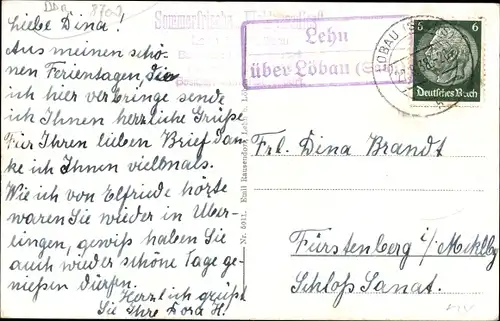 Liebe Dina!
Aus meinen schö-
nen Ferientagen, die
ich hier verbringe sende
ich Ihnen herzliche Grüße
Für Ihren lieben Brief dan-
ke ich Ihnen vielmals.
Wie ich von Elfriede hörte
waren Sie wieder in Über-
lingen, gewiß haben Sie
auch wieder schöne Tage ge-
nießen dürfen.
Herzlich grüßt
Sie Ihre Dora H.!
Sommerfrische
Lehn
über Löbau
LÖBAU
6 6
Deutsches Reich
Nr. 5011. Emil Rausendorf,
Frl. Dina Brandt
Fürstenberg i/Mecklbg
Schloß Sanat.